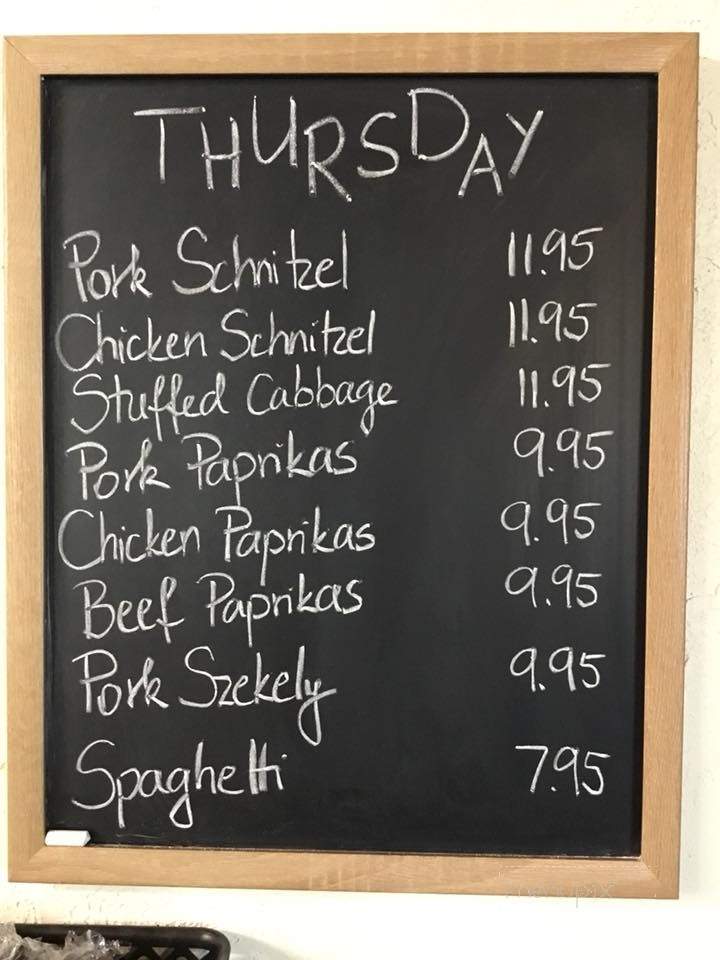 THURSDAY
Pork Schnitzel 11.95
Chicken Schnitzel 11.95
Stuffed Cabbage 11.95
Pork Paprikas 9.95
Chicken Paprikas 9.95
Beef Paprikas 9.95
Pork Szekely 9.95
Spaghetti 7.95